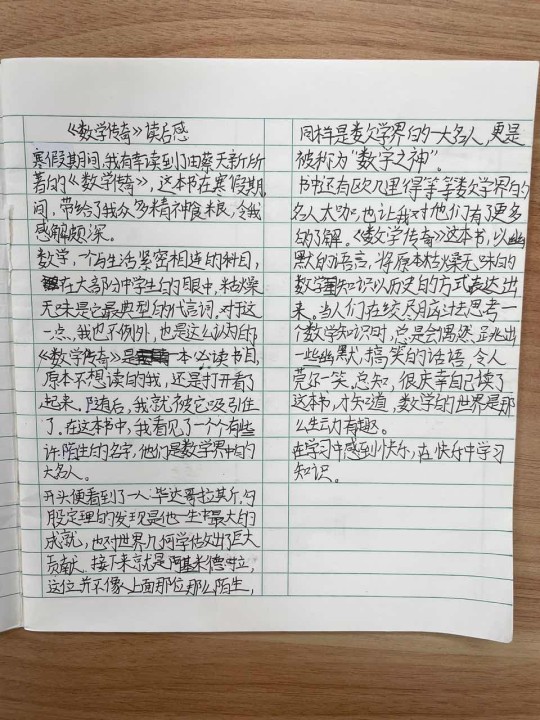 《数学传奇》读后感
寒假期间,我有幸读到了由蔡天新所
著的《数学传奇》,这本书在寒假期
间,带给了我众多精神食粮,令我
感解颇深。
数学,一个与生活紧密相连的科目,
在大部分中学生的眼中,枯燥
无味是它最典型的代言词,对于这
一点,我也不例外,也是这么认为的
《数学传奇》是一本必读书目,
原本不想读的我,还是打开看了
起来。随后,我就被它吸引住
了。在这本书中,我看见了一个个有些
许陌生的名字,他们是数学界中的
大名人。
开头便看到了一人:毕达哥拉斯,勾
股定理的发现是他一生最大的
成就,也对世界几何学估处出了巨大
贡献。接下来就是阿基米德
这位并不像上面那位那么陌生,
同样是数学界的一大名人,更是
被称为“数学之神”。
书中还有欧几里得等等数学界的
名人大咖,也让我对他们有了更多
的了解。《数学传奇》这本书,以幽
默的语言,将原本枯燥无味的
数学知识以历史的方式表达出
来。当人们在绞尽脑汁去思考一
个数学知识时,总是会偶然跳出
一些幽默,搞笑的话语,令人
莞尔一笑。总知,很庆幸自己读了
这本书,才知道,数学的世界是那
么生动有趣。
在学习中感到快乐,在快乐中学习
知识。